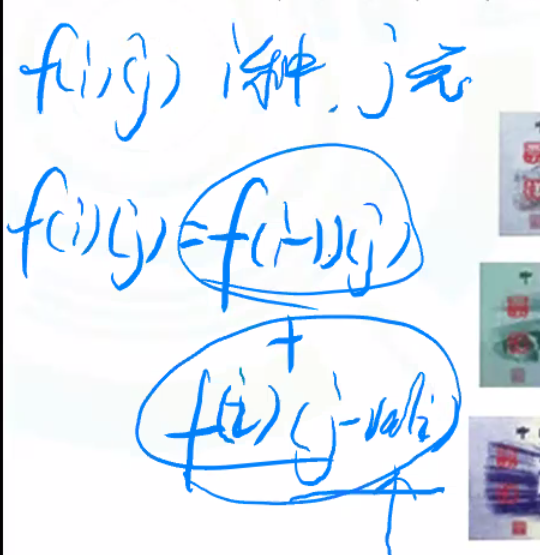 f(i)(j) i种, j元
f(i)(j)=f(i-1)(j)
+
f(i)(j-val i)